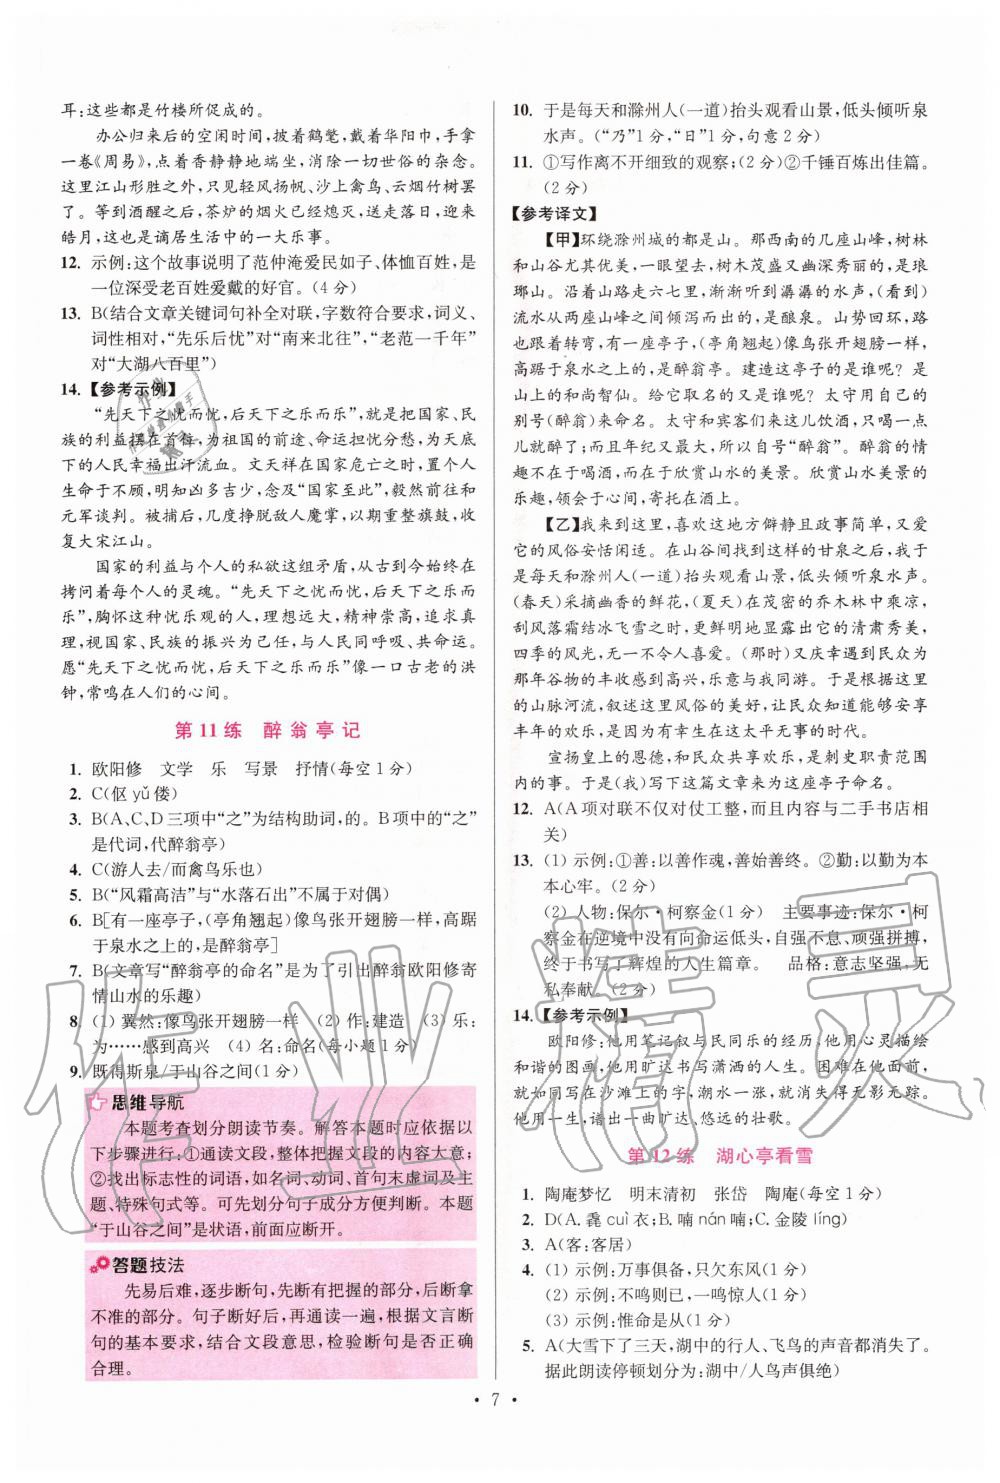 耳:这些都是竹楼所促成的。
办公归来后的空闲时间,披着鹤氅,戴着华阳巾,手拿
一卷《周易》,点着香静静地端坐,消除一切世俗的杂念。
这里江山形胜之外,只见轻风扬帆、沙上禽鸟、云烟竹树罢
了。等到酒醒之后,茶炉的烟火已经熄灭,送走夕阳,迎来
皓月,也是谪居生活中的一大乐事。
12. 示例:这个故事说明了范仲淹爱民如子、体恤百姓,是
一位深受老百姓爱戴的好官。(4分)
13. B(结合文章关键词句补全对联,字数符合要求,词义、
词性相对,“先乐后忧”对“南来北往”,“老范一千年”
对“大湖八百里”)
14. 【参考示例】
“先天下之忧而忧,后天下之乐而乐”,就是把国家、民
族的利益摆在首位,为祖国的前途、命运担忧分愁,为天底
下的人民幸福出汗流血。文天祥在国家危亡之时,置个人
生命于不顾,明知凶多吉少,念及“国家至此”,毅然前往和
元军谈判。被捕后,几度挣脱敌人魔掌,以期重整旗鼓,收
复大宋江山。
国家的利益与个人的私欲这组矛盾,从古到今始终在
拷问着每个人的灵魂。“先天下之忧而忧,后天下之乐而
乐”,胸怀这种忧乐观的人,理想远大,精神崇高,追求真
理,视国家、民族的振兴为己任,与人民同呼吸、共命运。
愿“先天下之忧而忧,后天下之乐而乐”像一口古老的洪
钟,常鸣在人们的心间。
第11练 醉翁亭记
1. 欧阳修 文学 乐 写景 抒情(每空1分)
2. C(伛yǔ偻)
3. B(A、C、D三项中“之”为结构助词,的。B项中的“之”
是代词,代醉翁亭)
4. C(游人去/而禽鸟乐也)
5. B(“风霜高洁”与“水落石出”不属于对偶)
6. B[有一座亭子,(亭角翘起)像鸟张开翅膀一样,高踞
于泉水之上的,是醉翁亭]
7. B(文章写“醉翁亭的命名”是为了引出醉翁欧阳修寄
情山水的乐趣)
8. (1) 翼然:像鸟张开翅膀一样 (2) 作:建造 (3) 乐:
为……感到高兴 (4) 名:命名(每小题1分)
9. 既得斯泉/于山谷之间(1分)
思维导航
本题考查划分朗读节奏。解答本题时应依据以
下步骤进行:①通读文段,整体把握文段大意;②
找出标志性的词语,如名词、动词、首末虚词及主
题、特殊句式等。可先划分句子成分方便判断。本题
“于山谷之间”是状语,前面应断开。
答题技法
先易后难,逐步断句,先断有把握的部分,后断拿
不准的部分。句子断好后,再通读一遍,根据文言断句
的基本要求,结合文段意思,检验断句是否正确
合理。
10. 于是每天和滁州人(一道)抬头观看山景,低头倾听泉
水声。(“乃”1分,“日”1分,句意2分)
11. ①写作离不开细致的观察;(2分)②千锤百炼出佳篇。
(2分)
【参考译文】
【甲】环绕滁州城的都是山。那西南的几座山峰,树林
和山谷尤其优美,一眼望去,树木茂盛又幽深秀丽的,是琅
琊山。沿着山路走六七里,渐渐听到潺潺的水声,(看到)
流水从两座山峰之间倾泻而出的,是酿泉。山势回环,路
也跟着转弯,有一座亭子,(亭角翘起)像鸟张开翅膀一样,
高踞于泉水之上的,是醉翁亭。建造这亭子的是谁呢?是
山上的和尚智仙。给它命名的是谁呢?太守用自己的
别号(醉翁)来命名。太守和宾客们来这儿饮酒,只喝一点
儿就醉了;而且年纪又最大,所以自号“醉翁”。醉翁的情
趣不在于喝酒,而在于欣赏山水的美景。欣赏山水美景的
乐趣,领会于心间,寄托在酒上。
【乙】我来到这里,喜欢这地方僻静且政事简单,又爱
它的风俗安恬闲适。在山谷间找到这样的甘泉之后,我于
是每天和滁州人(一道)抬头观看山景,低头倾听泉水声。
(春天)采摘幽香的鲜花,(夏天)在茂密的乔木林中乘凉,
刮风落霜结冰飞雪之时,更鲜明地显露出它的清肃秀美,
四季的风光,无一不令人喜爱。(那时)又庆幸遇到民众为
那年谷物的丰收感到高兴,乐意与我同游。于是根据这里
的山脉河流,叙述这里风俗的美好,让民众知道能够安享
丰年的欢乐,是因为有幸生在这太平无事的时代。
宣扬皇上的恩德,和民众共享欢乐,是刺史职责范围
内的事。于是(我)写下这篇文章来为这座亭子命名。
12. A(A项对联不仅对仗工整,而且内容与二手书店相
关)
13. (1) 示例:①善:以善作魂,善始善终。②勤:以勤为本
本心牢。(2分)
(2) 人物:保尔·柯察金(1分) 主要事迹:保尔·柯
察金在逆境中没有向命运低头,自强不息、顽强拼搏,
终于书写了辉煌的人生篇章。 品格:意志坚强,无
私奉献。(2分)
14. 【参考示例】
欧阳修:他用笔记叙与民同乐的经历,他用心灵描绘
和谐的图画,他用旷达书写潇洒的人生。困难在他面前,
就如同写在沙滩上的字,潮水一涨,就消失得无影无踪。
他用一生,谱出一曲旷达、悠远的壮歌。
第12练 湖心亭看雪
1. 陶庵梦忆 明末清初 张岱 陶庵(每空1分)
2. D(A. 毳cuì衣;B. 喃nán喃;C. 金陵líng)
3. A(客:客居)
4. (1) 示例:万事俱备,只欠东风(1分)
(2) 示例:不鸣则已,一鸣惊人(1分)
(3) 示例:惟命是从(1分)
5. A(大雪下了三天,湖中的行人、飞鸟的声音都消失了。
据此朗读停顿划分为:湖中/人鸟声俱绝)
• 7 •
作业精灵